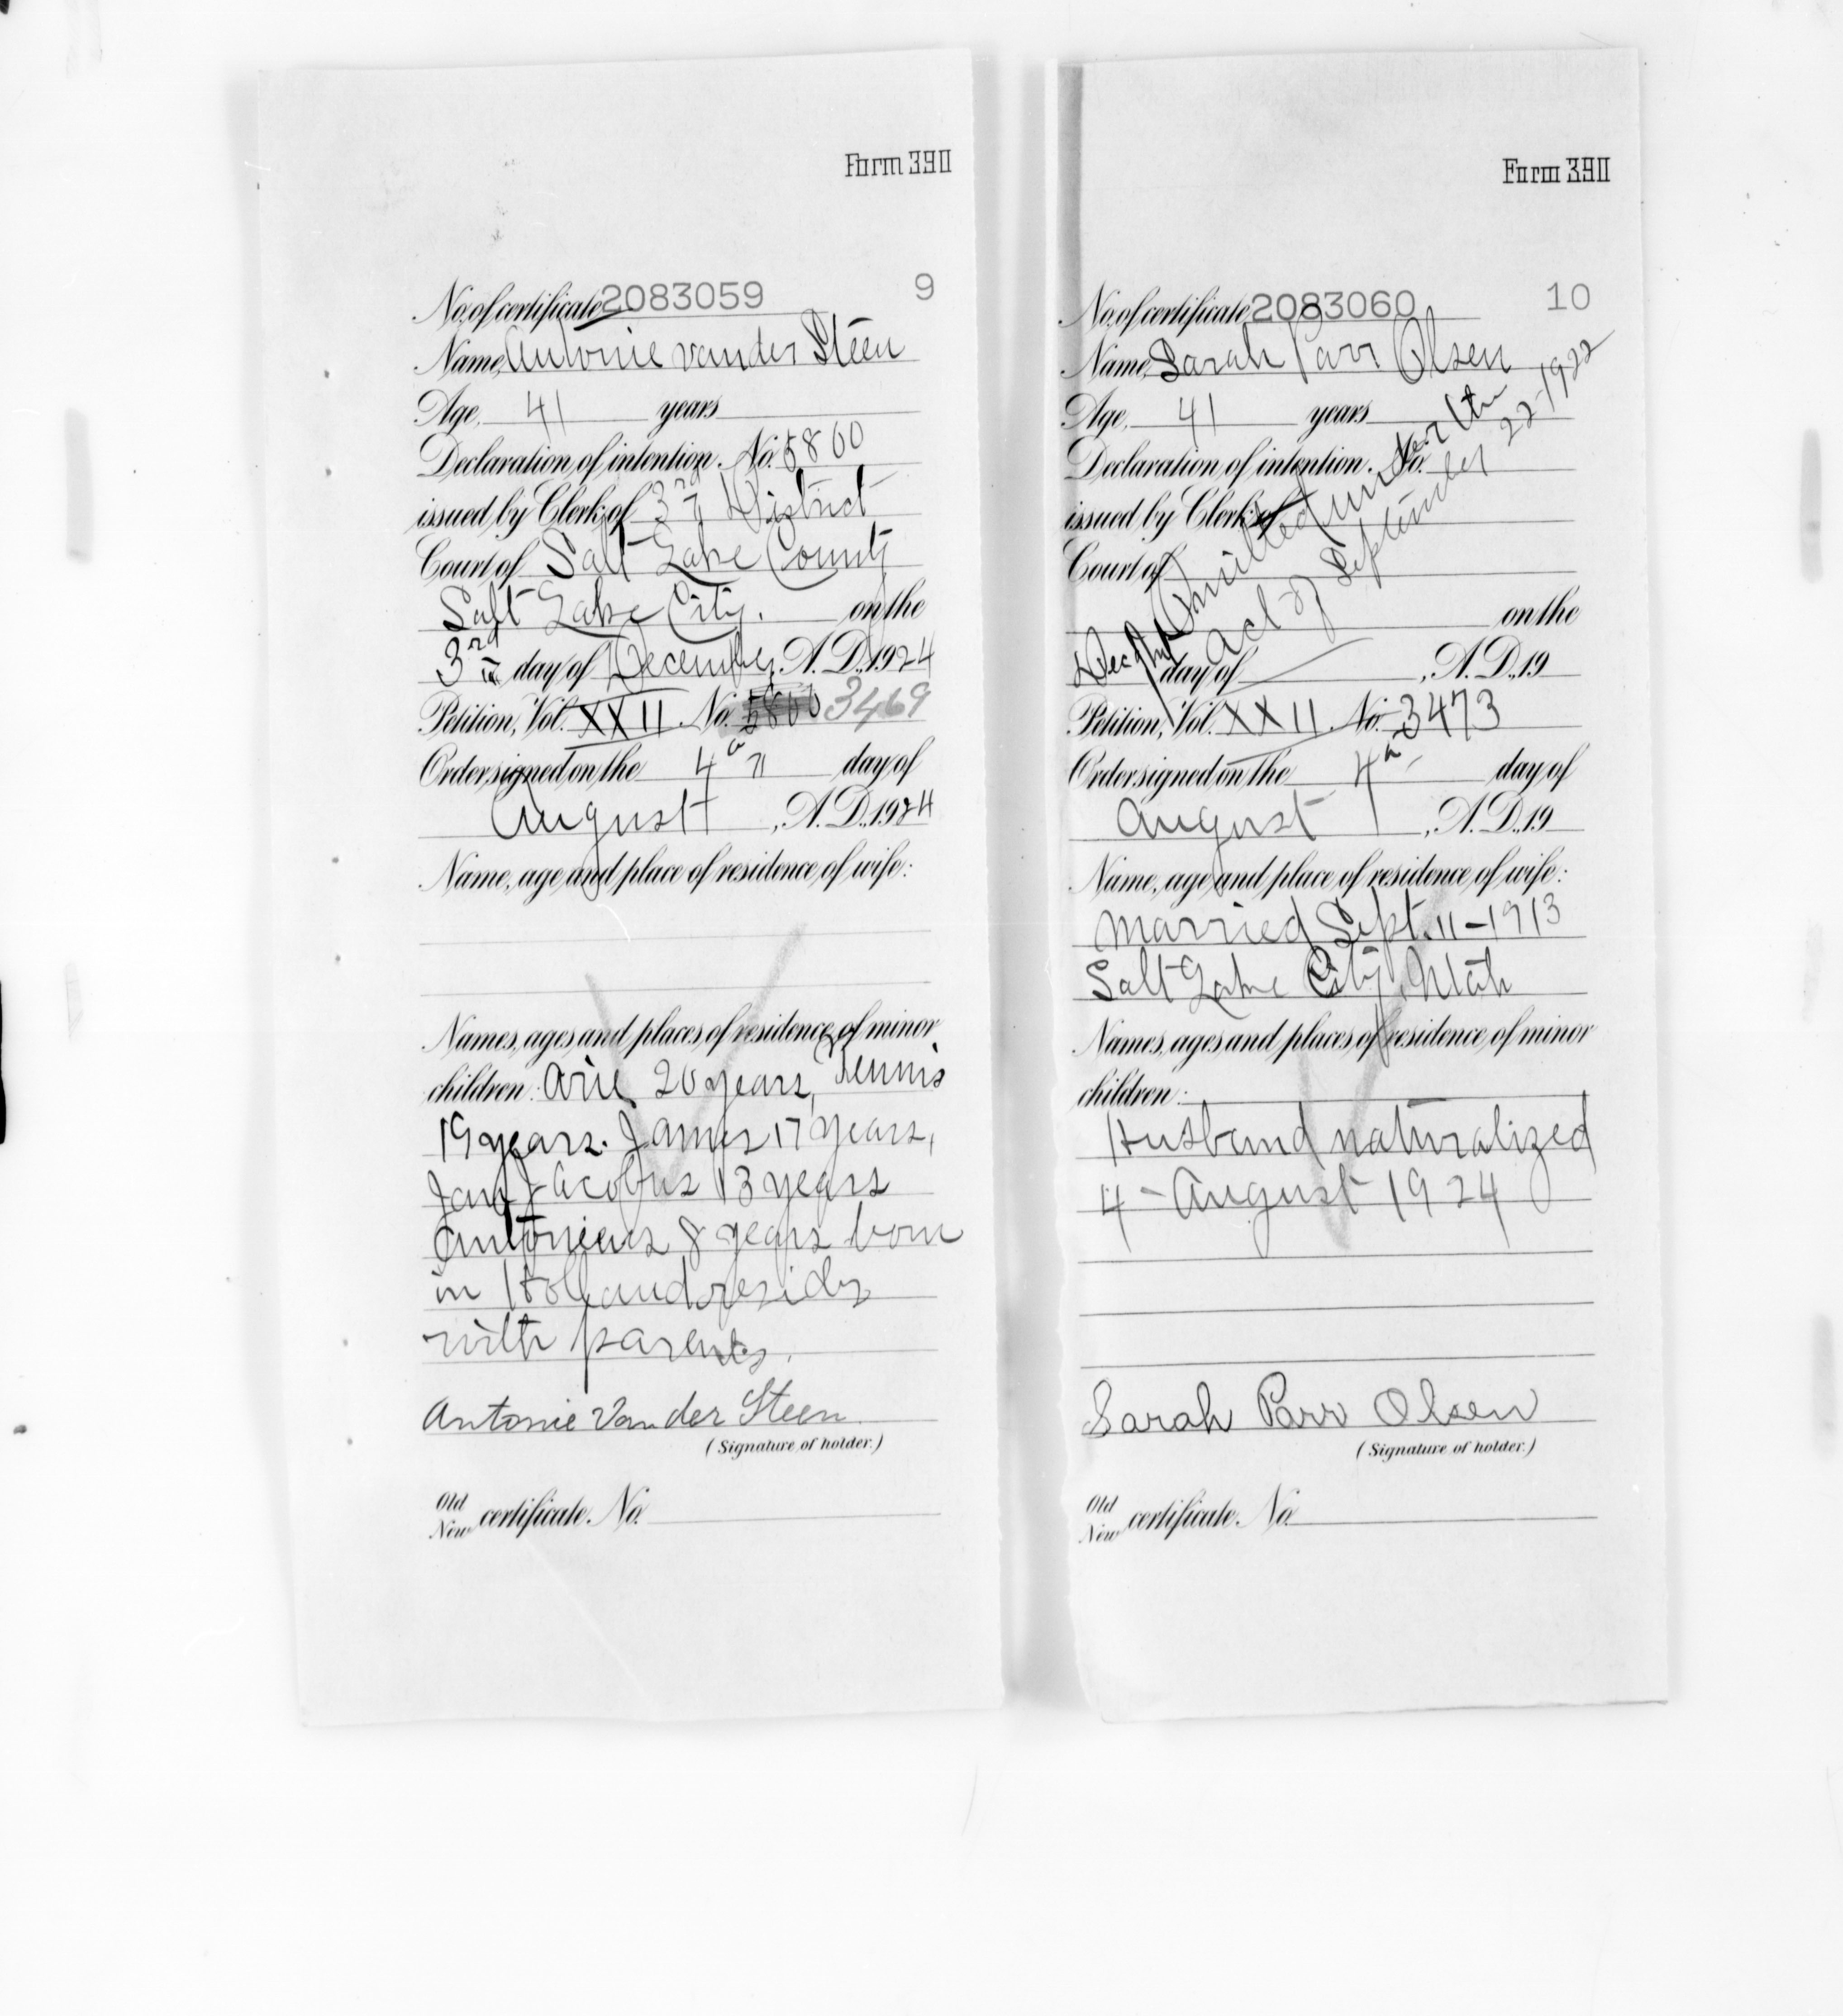 Form 390
No. of certificate 2083059 9
Name, Antonie van der Steen
Age, 41 years
Declaration of intention, No. 5800
issued by Clerk of 3rd District
Court of Salt Lake County
Salt Lake City. on the
3rd day of December, A. D., 1924
Petition, Vol. XXII No. 5800 3469
Order signed on the 4th day of
August, A. D., 1924
Name, age and place of residence of wife:
Names, ages and places of residence of minor
children: Arie 20 years, Teunis
19 years. James 17 years,
Jan Jacobus 13 years
Antonieus 8 years born
in Holland resides
with parents.
Antonie Van der Steen
(Signature of holder.)
Old
New certificate No.
Form 390
No. of certificate 2083060 10
Name, Sarah Parr Olsen
Age, 41 years
Declaration of intention, No.
issued by Clerk of
Court of
on the
day of , A. D., 19
Decl Omitted under the
act of September 22-1922
Petition, Vol. XXII No. 3473
Order signed on the 4th day of
August, A. D., 19
Name, age and place of residence of wife:
Married Sept. 11-1913
Salt Lake City, Utah
Names, ages and places of residence of minor
children:
Husband naturalized
4 - August 1924
Sarah Parr Olsen
(Signature of holder.)
Old
New certificate No.